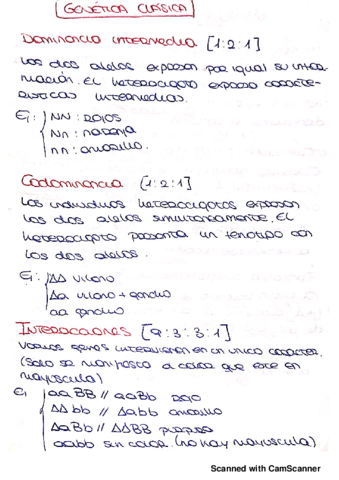 GENÉTICA CLÁSICA
Dominancia intermedia [1:2:1]
Los dos alelos expresan por igual su infor-
mación. El heterocigoto expresa caracte-
rísticas intermedias.
Ej: NN: rojos
Nn: naranja
nn: amarillo.
Codominancia [1:2:1]
Los individuos heterocigotos expresan
los dos alelos simultáneamente. El
heterocigoto presenta un fenotipo con
los dos alelos.
Ej: AA villano
Aa villano + gancho
aa gancho
INTERACCIONES [9:3:3:1]
Varios genes intervienen en un único carácter.
(Solo se manifiesta a cara que esté en
mayúscula)
Ej aaBB // aaBb rojo
AAbb // Aabb amarillo
AaBB // AABB púrpura
aabb sin color. (no hay mayúscula)
Scanned with CamScanner